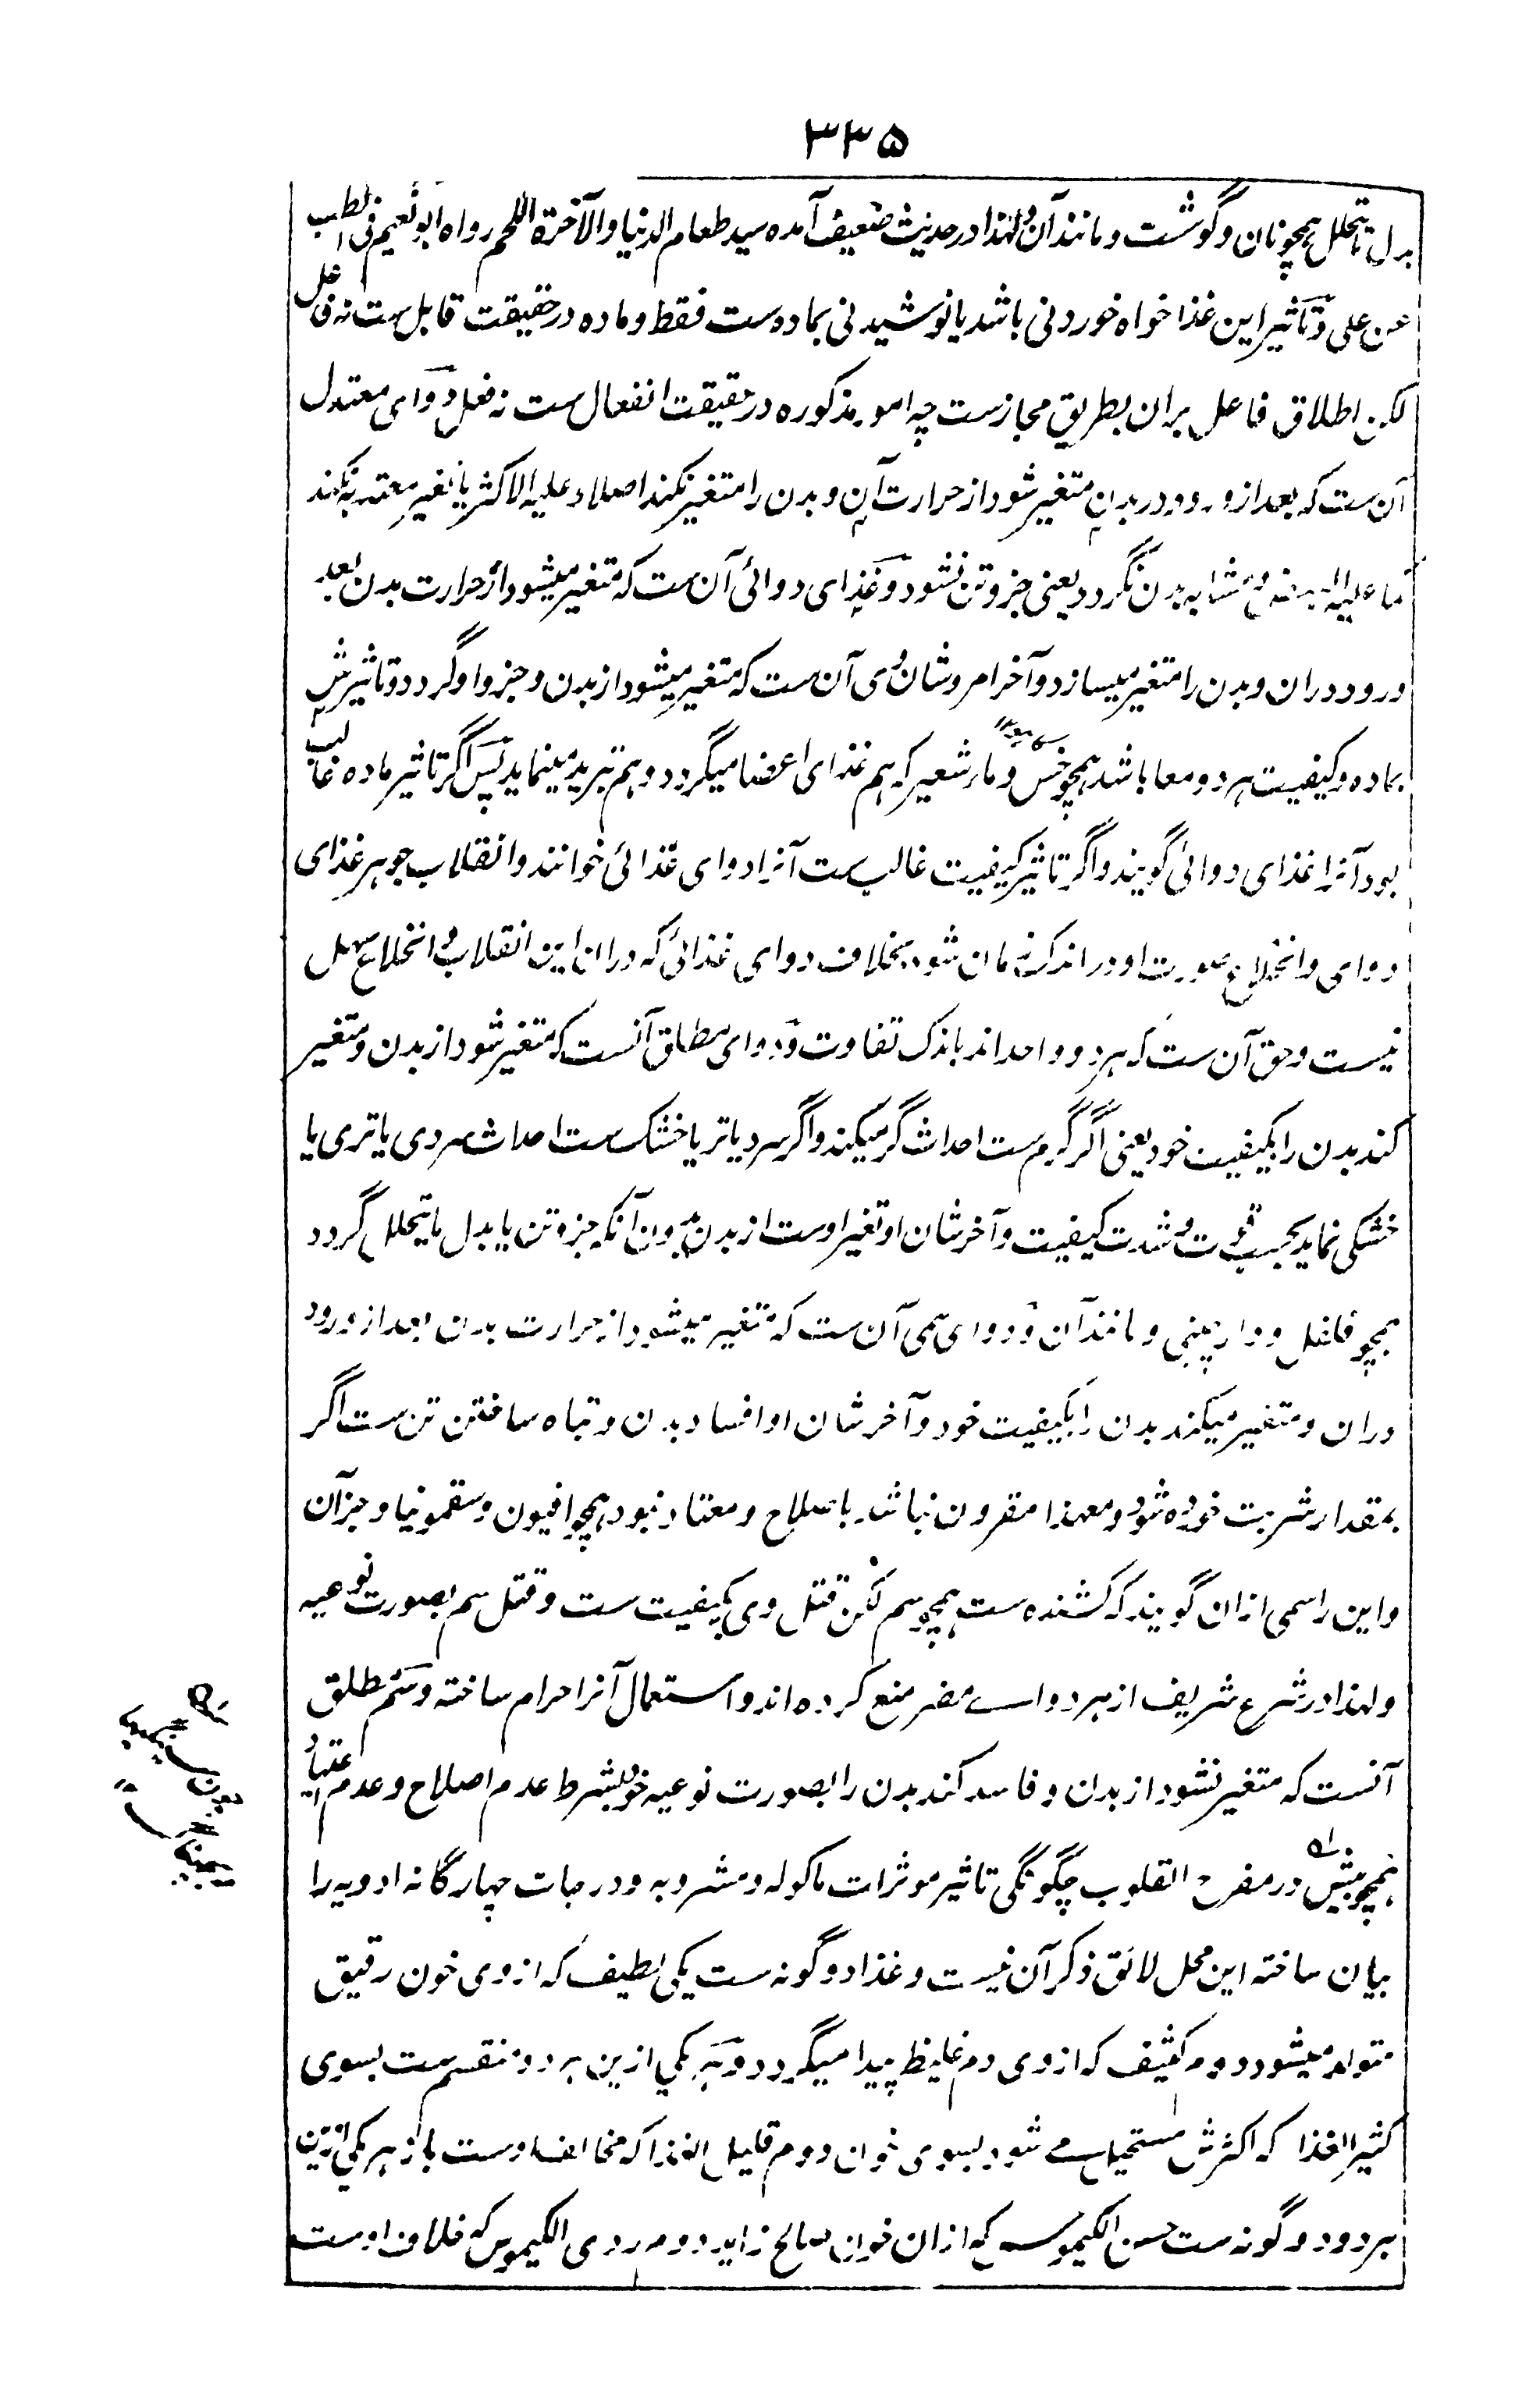 ۳۳۵
بدل ما یتحلل همچو نان و گوشت و مانند آن و لهذا در حدیث ضعیف آمده سید طعام الدنیا والآخرة اللحم رواه ابو نعیم فی الطب
عن علی و تاثیر این غذا خواه خوردنی باشد یا نوشیدنی بماده ست فقط و ماده در حقیقت قابل ست نه فاعل
لکن اطلاق فاعل بران بطریق مجازست چه امور مذکوره در حقیقت انفعال ست نه فعل و دوای معتدل
آن ست که بعد از ورود در بدن متغیر شود از حرارت آن و بدن را متغیر نکند اصلا و علیه الاکثر یا تغیر معتد به نکند
کما علیه البعض و مشابه بدن نگردد یعنی جزو تن نشود و غذای دوائی آن ست که متغیر میشود از حرارت بدن بعد
ورود دران و بدن را متغیر میسازد و آخر امر و شان وی آن ست که متغیر میشود از بدن و جزو او گردد و تاثیرش
بماده و کیفیت هر دو معا باشد همچو خس و ماء شعیر که هم غذای اعضا میگردد و هم تبرید مینماید پس اگر تاثیر ماده غالب
بود آنرا غذای دوائی گویند و اگر تاثیر کیفیت غالب ست آنرا دوای غذائی خوانند و انقلاب جوهر غذای
دوای و انخلاع صورت او در اندک زمان شود بخلاف دوای غذائی که دران این انقلاب و انخلاع سهل
نیست و حق آن ست که هر دو واحد اند باندک تفاوت و دوای مطلق آنست که متغیر شود از بدن و متغیر
کند بدن را بکیفیت خود یعنی اگر گرم ست احداث گرمی کند و اگر سرد یا تر یا خشک ست احداث سردی یا تری یا
خشکی نماید بحسب قوت و شدت کیفیت و آخر شان او تغیر اوست از بدن بدون آنکه جزو تن یا بدل ما یتحلل گردد
همچو فلفل و دارچینی و مانند آن و دوای سمی آن ست که متغیر میشود از حرارت بدن بعد از ورود
دران و متغیر میکند بدن را بکیفیت خود و آخر شان او افساد بدن و تباه ساختن تن ست اگر
بمقدار شربت خورده شود و معهذا مقرون نباشد باصلاح و معتاد نبود همچو افیون و سقمونیا و جز آن
و این را سمی ازان گویند که کشنده ست همچو سم لکن قتل وی بکیفیت ست و قتل سم بصورت نوعیه
و لهذا در شرع شریف از هر دوای مضر منع کرده اند و استعمال آنرا حرام ساخته و سم مطلق
آنست که متغیر نشود از بدن و فاسد کند بدن را بصورت نوعیه خود بشرط عدم اصلاح و عدم اعتیاد
همچو بیش در مفرح القلوب چگونگی تاثیر موثرات ماکوله و مشروبه و درجات چهارگانه ادویه را
بیان ساخته این محل لائق ذکر آن نیست و غذا دو گونه ست یکی لطیف که از وی خون رقیق
متولد میشود دوم کثیف که از وی دم غلیظ پیدا میگردد و هر یکی ازین هر دو منقسم ست بسوی
کثیر الغذا که اکثرش مستحیل می شود بسوی خون دوم قلیل الغذا که مخالف اوست باز هر یکی ازین
هر دو دو گونه ست حسن الکیموس که ازان خون صالح زاید دوم ردی الکیموس که خلاف اوست